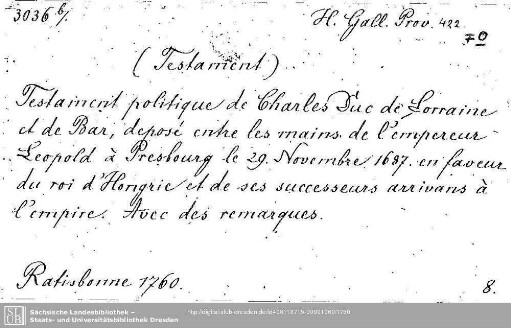 3036 b/.
H. Gall. Prov. 422
70
(Testament)
Testament politique de Charles Duc de Lorraine
et de Bar, deposé entre les mains de l'empereur
Leopold à Presbourg le 29. Novembre 1687. en faveur
du roi d'Hongrie et de ses successeurs arrivans à
l'empire. Avec des remarques.
Ratisbonne 1760.
8.
SLUB
Sächsische Landesbibliothek –
Staats- und Universitätsbibliothek Dresden